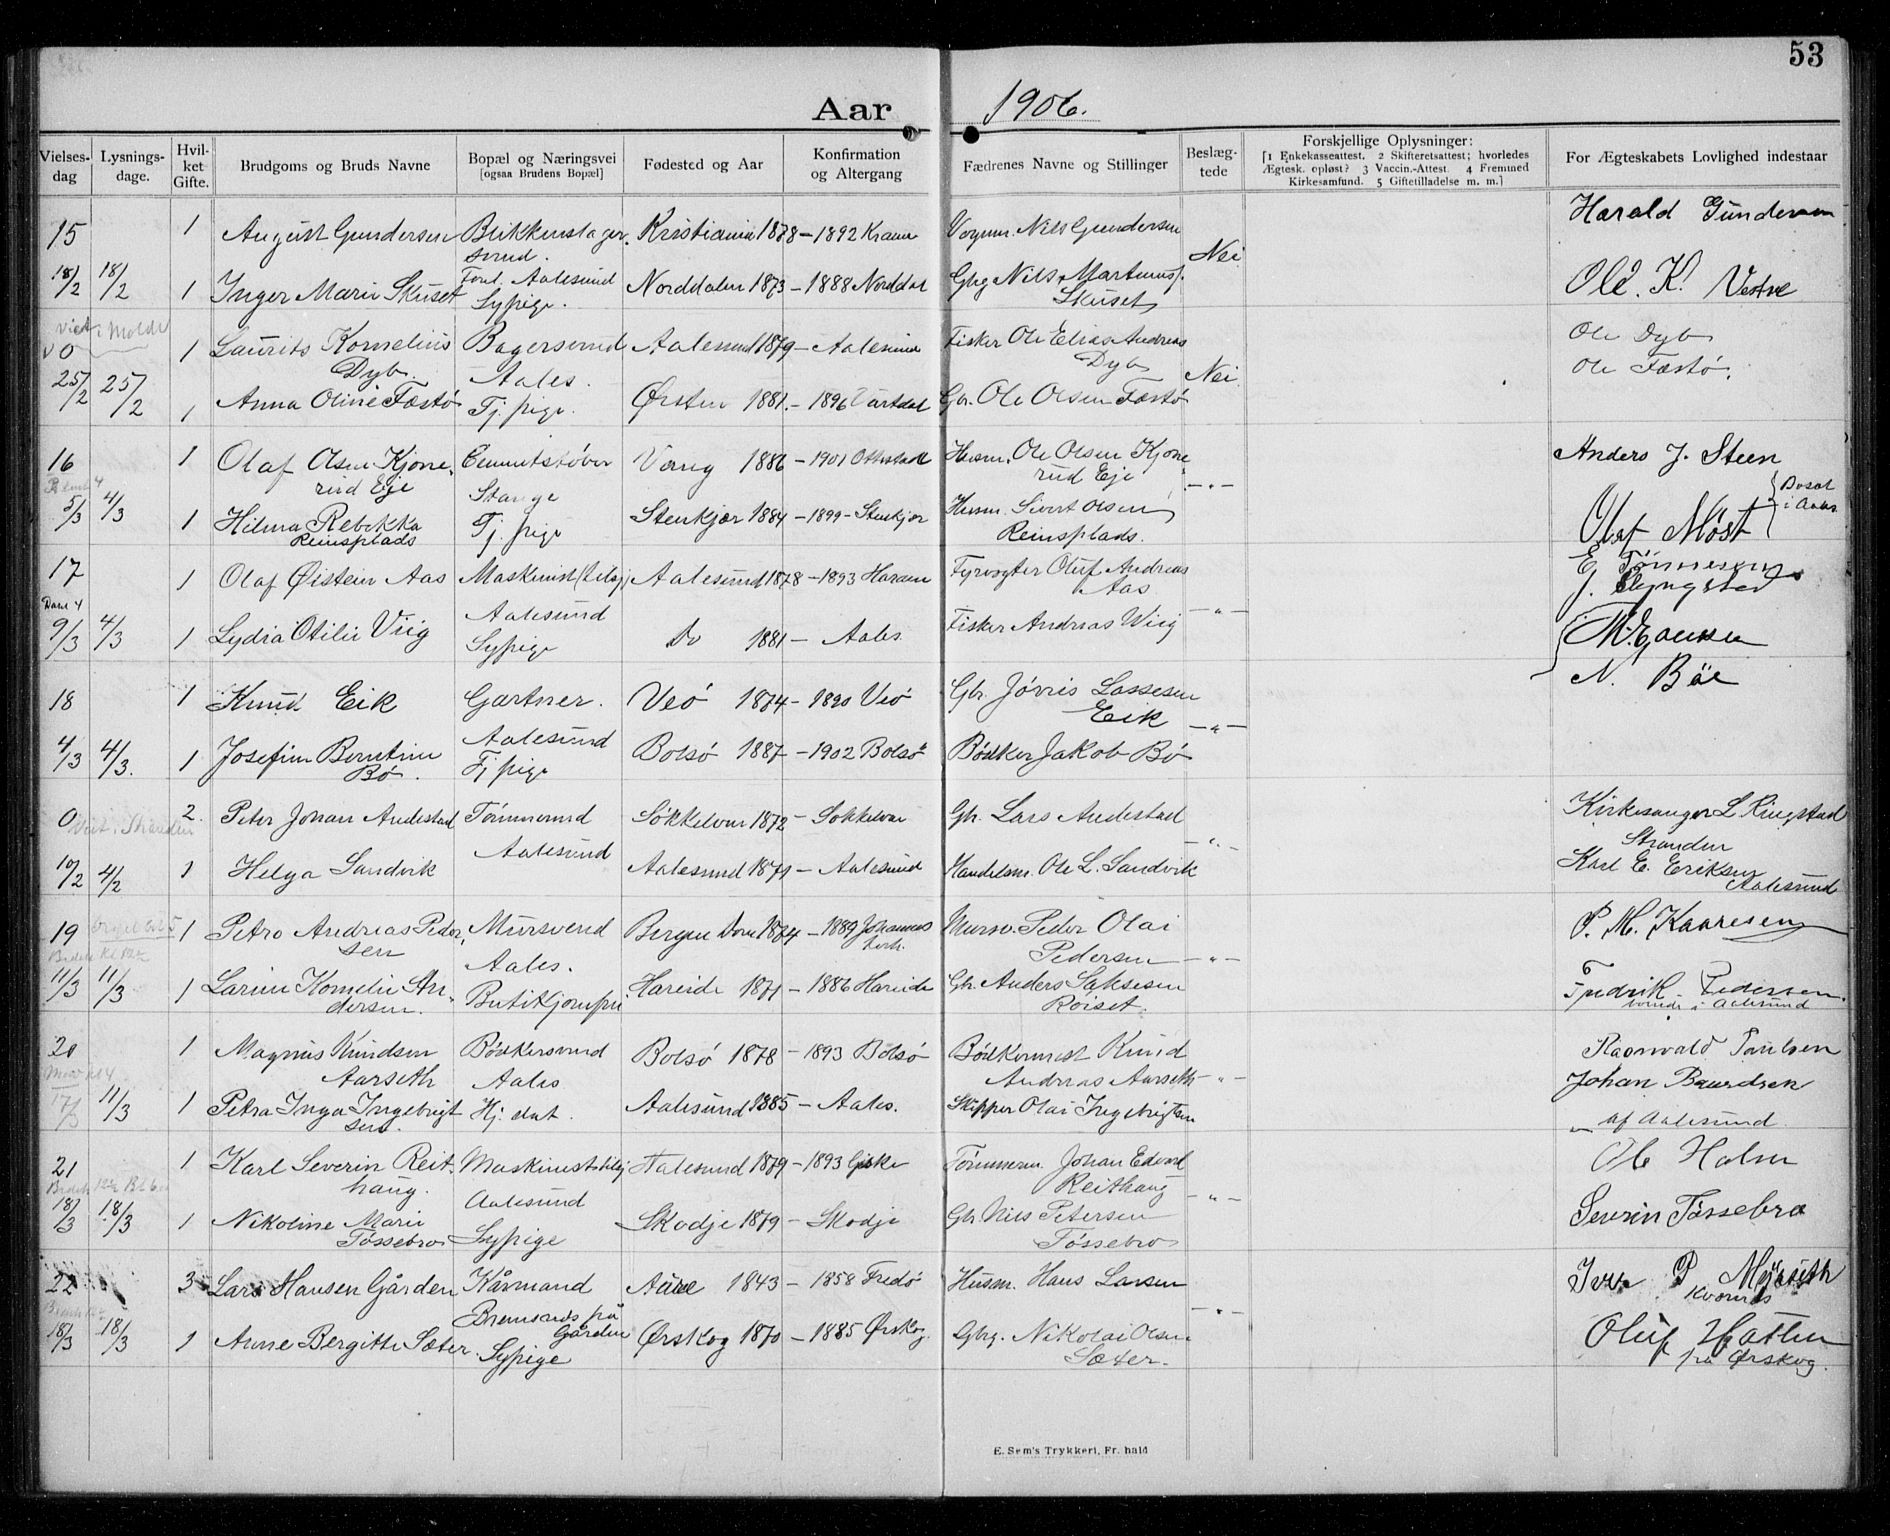 53
Aar 1906.
Vielses-dag
Lysnings-dage.
Hvil-ket Gifte.
Brudgoms og Bruds Navne
Bopæl og Næringsvei [ogsaa Brudens Bopæl]
Fødested og Aar
Konfirmation og Altergang
Fædrenes Navne og Stillinger
Beslæg-tede
Forskjellige Oplysninger: [1 Enkekasseattest. 2 Skifteretsattest; hvorledes Ægtesk. opløst? 3 Vaccin.-Attest. 4 Fremmed Kirkesamfund. 5 Giftetilladelse m. m.]
For Ægteskabets Lovlighed indestaar
15 1 August Gundersen Blikkenslager Kristiania 1878 – 1892 Vognm. Nils Gundersen Harald Gundersen
svend. Nei
18/2 18/2 1 Inger Marie Skuset Aalesund Norddalen 1873 – 1888 Norddal Gbrg Nils Martinus Ole. K.
Sypige. Skuset
Viet i Molde
0 1 Laurits Kornelius Bagersvend Aalesund 1879 – Aalesund Fisker Ole Elias Andreas Ole Dyb
Dyb. Aales. Dyb Nei Ole Fæstø.
25/2 25/2 1 Anna Oline Fæstø Tj. pige. Ørsten 1881. – 1896 Vartdal Gbr. Ole Olsen Fæstø
16 1 Olaf Olsen Kjone- Vang 1886 – 1901 Ottestad Husm. Ole Olsen Kjone Anders J. Steen
rud Eje Stange rud Eje – " –
5/3 4/3 1 Hilma Rebekka Tj. pige Stenkjær 1884 – 1899 – Stenkjær Husm. Sivert Olsen Olaf Møst
Reinsplads Reinsplads. Bosat i Aales
17 1 Olaf Øistein Aas Maskinist Aalesund 1878 – 1893 Haram Fyrbøter Oluf Andreas E Tønnesen
Aalesund Aas – " –
9/3 4/3 1 Lydia Otilie Viig Sypige Do 1881 – Aales Fisker Andreas Wiig
N. Bøe
18 1 Knud Eik Gartner. Veø 1874 – 1890 Veø Gbr. Jørris Lassesen
Aalesund Eik – " –
4/3 4/3. 1 Josefine Berntine Tj pige Bolsø 1887 – 1902 Bolsø Bødker Jakob Bø
Bø.
0 2. Peter Johan Andestad Tømmermd Søkkelven 1872 – Søkkelven Gbr. Lars Andestad Kirkesanger L Ringstad
Viet i Stranden Aalesund – " – Stranden
10/2 4/2 1 Helga Sandvik Aalesund 1871 – Aalesund Handelsm. Ole L. Sandvik Karl E. Eriksen
Aalesund
19 1 Petro Andreas Peder- Mursvend Bergen Dom 1874 – 1889 Johannes Mursv. Peder Olai P. M. Kaaresen
sen Aales. Pedersen – " –
11/3 11/3 1 Larine Kornelie An- Butikjomfru Hareide 1871 – 1886 Hareide Gbr Anders Saksesen Fredrik Pedersen
dersen. Røiset. boende i Aalesund
20 1 Magnus Knudsen Bødkersvend Bolsø 1878 – 1893 Bolsø Bødkermest Knud Ragnvald Paulsen
Aarseth Aales Andreas Aarseth – " – Johan Baardsen
17/3 11/3 1 Petra Inga Ingebrigt Hj. dat. Aalesund 1885 – Aales. Skipper Olai Ingebrigtsen af Aalesund
sen.
21 1 Karl Severin Reit- Aalesund 1879 – 1893 Giske Tømmerm. Johan Edvard Ole Holm
haug. Aalesund Reithaug – " –
18/3 18/3 1 Nikoline Marie Sypige Skodje 1879 – Skodje Gbr Nils Petersen Severin Tøssebro
Tøssebro Tøssebro
22 3 Lars Hansen Gården Kårmand Aure 1843 – 1858 Fredø Husm. Hans Larsen Iver P
Bremsnæs på Gården – " – Kvernes
18/3 18/3 1 Anne Bergitte Sæter. Sypige Ørskog 1870 – 1885 Ørskog. Gbrg. Nikolai Olsen Oluf Hatlen
Sæter. fra Ørskog.
E. Sem's Trykkeri, Fr. hald